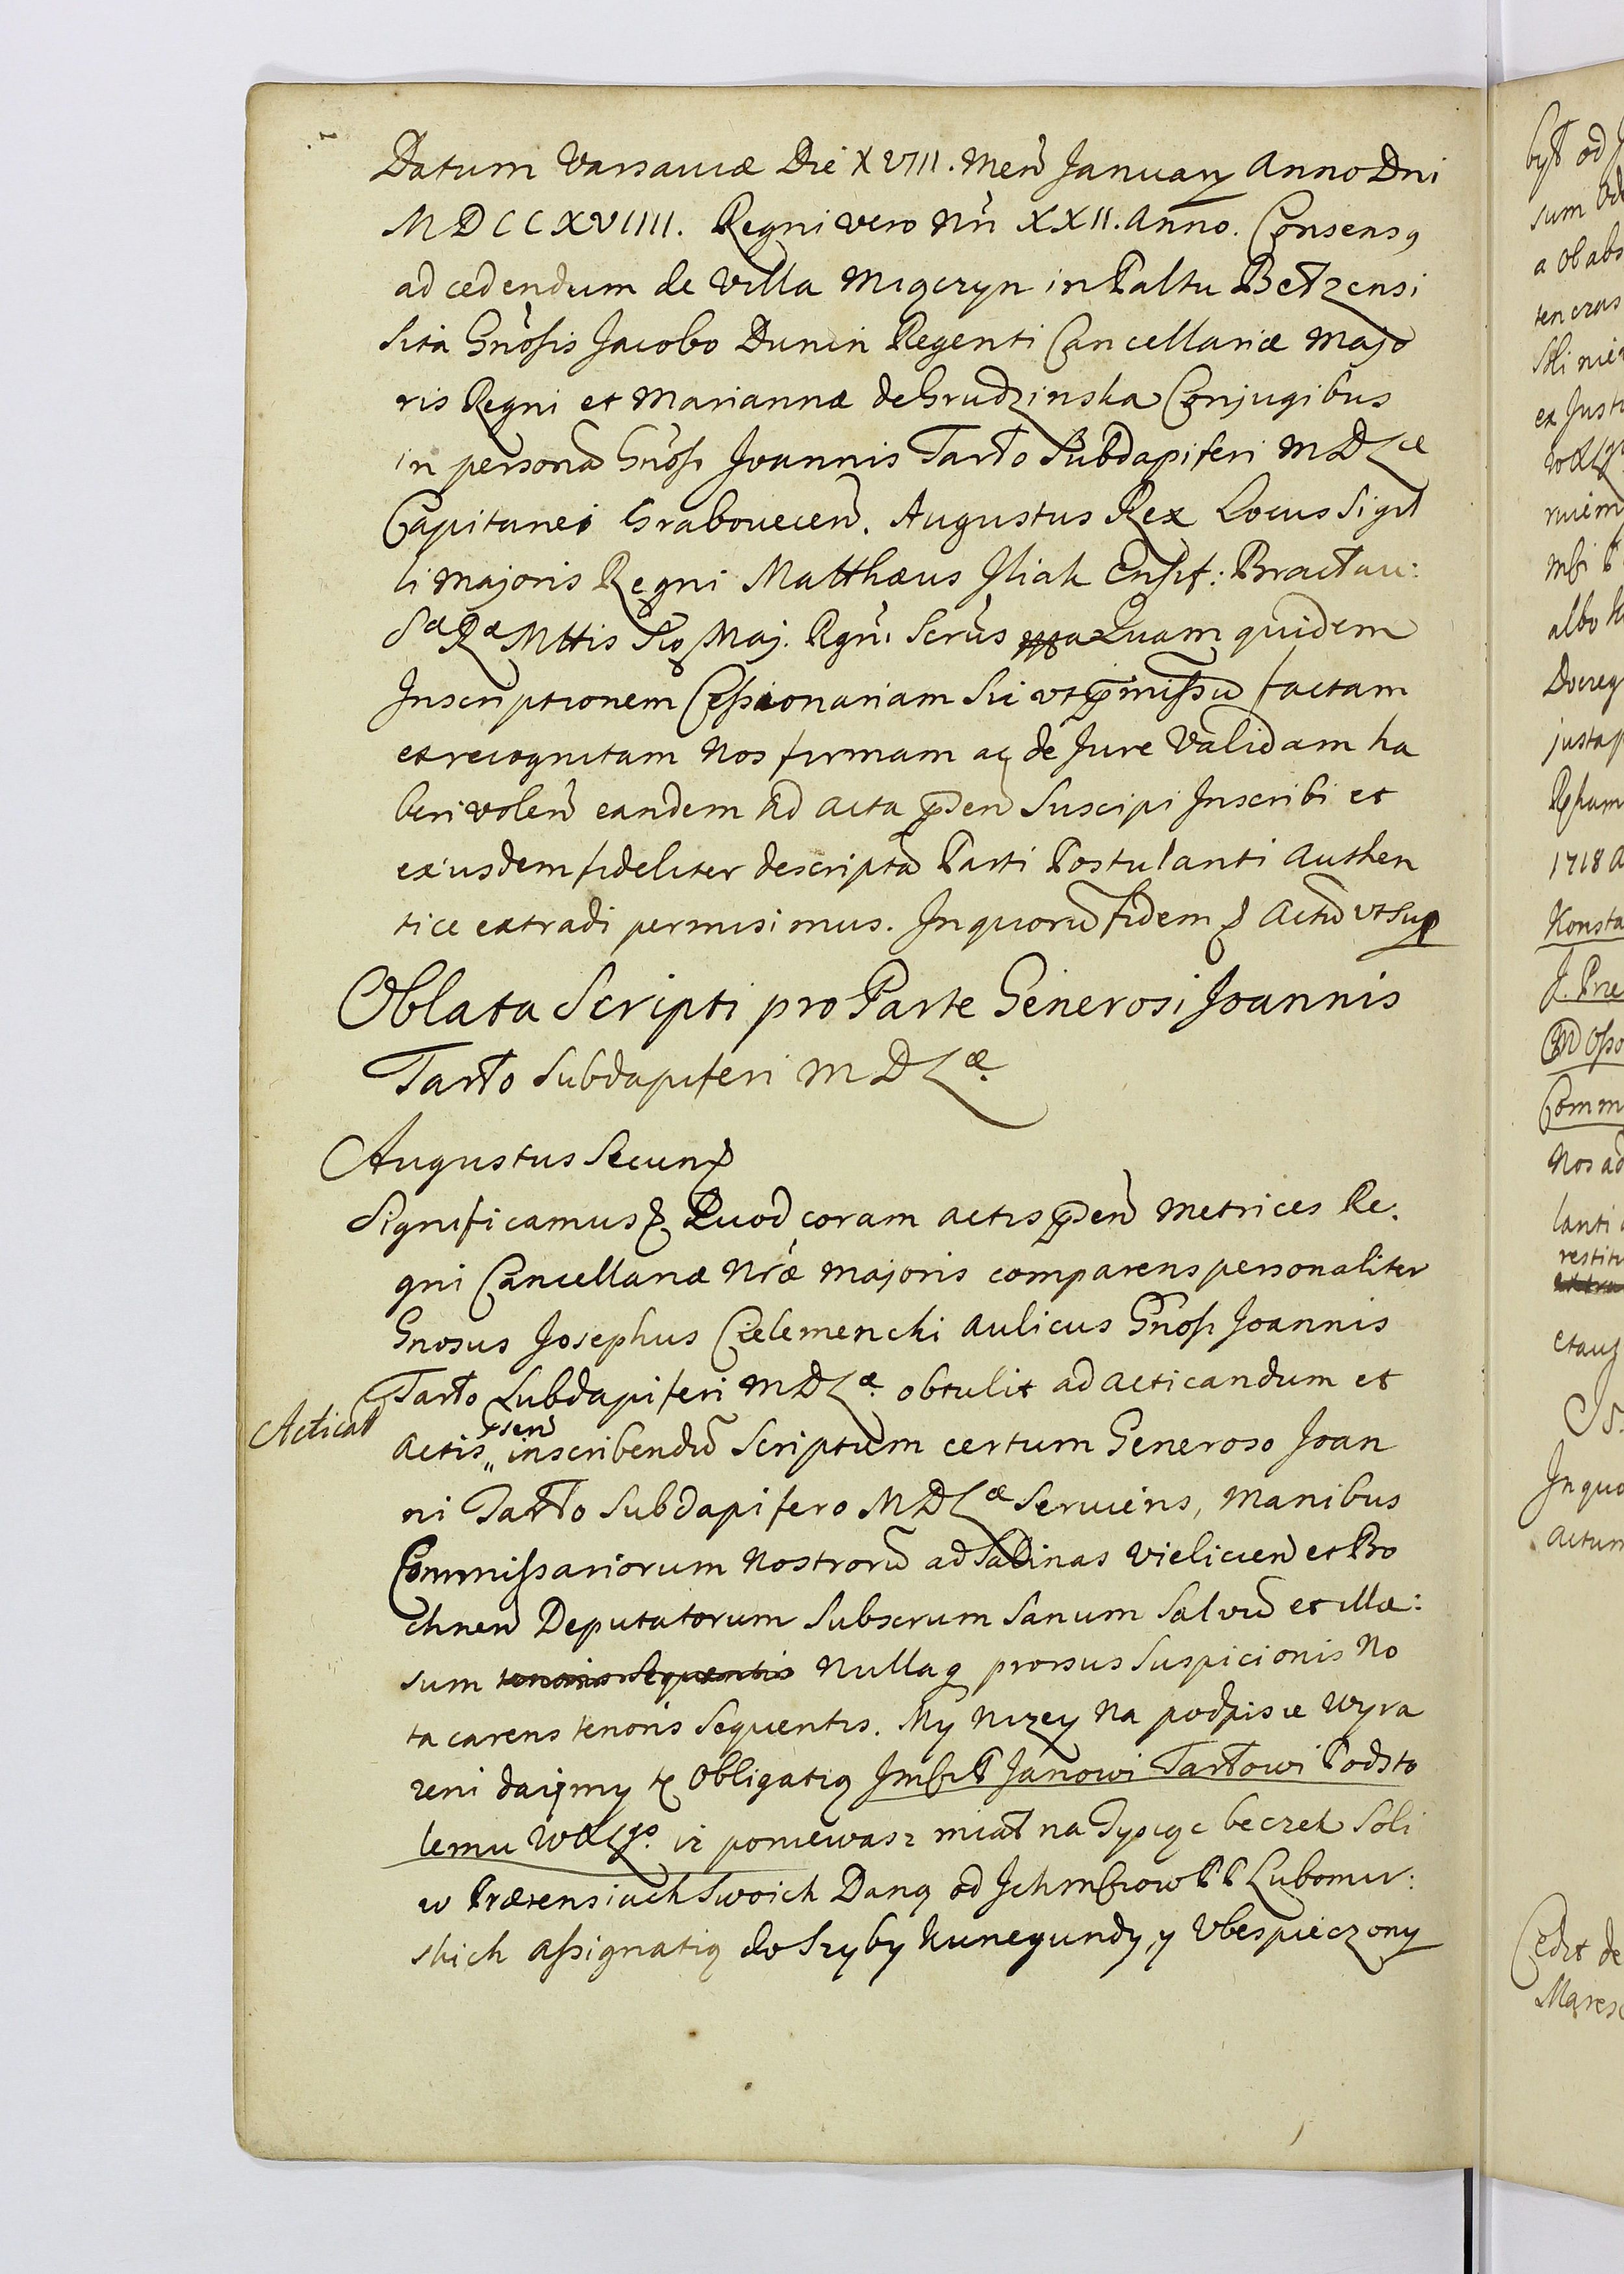 Datum Varsaviæ Die XVIII. Men̄ January Anno Dni
MDCCXVIIII. Regni vero Nri XXII. Anno. Consensꝯ
ad cedendum de Villa Migczyn in Paltu Bełzensi
sita Gnosis Jacobo Dunin Regenti Cancellariæ Majo
ris Regni et Mariannæ de Grudzinska Conjugibus
in persona Gnosi Joannis Tarło Subdapiferi MDLæ
Capitanei Grabovecen. Augustus Rex Locus Sigil
li Majoris Regni Matthæus Iliak Ensif: Bracłav:
SæRæMttis Sig Maj. Rgni Scrius Quam quidem
Inscriptionem Cessionariam sic vt præmissu factam
et recognitam Nos firmam ac de Jure Validam ha
beri volen eandem ad acta præsen suscipi Inscribi et
ex iisdem fideliter descripta Parti Postulanti Authen
tice extradi permisimus. In quoru fidem & Actu vt sup
Oblata Scripti pro Parte Generosi Joannis
Tarło Subdapiferi MDLæ
Augustus Secun
Significamus & Quod coram actis præsen Metrices Re:
gni Cancellariæ Nræ Majoris comparens personaliter
Gnosus Josephus Cielemencki Aulicus Gnosi Joannis
Tarło Subdapiferi MDLæ obtulit ad acticandum et
Acticatt
præsen
actis „ inscribendu Scriptum certum Generoso Joan
ni Tarło Subdapifero MDLæ Serviens, Manibus
Commissariorum Nostroru ad Salinas Vielicien et Bo
chnen Deputatorum Subscrum Sanum Salvu et illæ:
sum tenoris Sequentis Nullaq prorsus Suspicionis No
ta carens tenoris Sequentis. My Nizey Na podpisie Wyra
zeni daięmy tę Obligatią JmściP Janowi Tarłowi Podsto
lemu WXLgo. iz poniewasz miał na Tysiąc beczek Soli
w Prætensiach Swoich Daną od Jchmściow PP Lubomir:
skich Assignatią do Szyby Kunegundy, y Vbespieczony